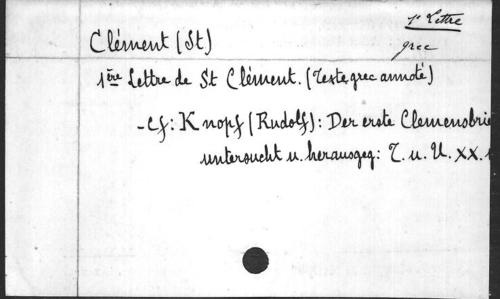 1e Lettre
Clément (St)
grec
1ère Lettre de St Clément. (Texte grec annoté)
- cf: Knopf (Rudolf): Der erste Clemensbrie
untersucht u. herausgeg: T. u. U. XX.